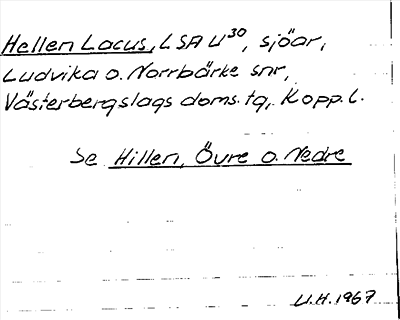 Hellen Lacus, LSA U30, sjöar,
Ludvika o. Norrbärke snr,
Västerbergslags doms. tg, Kopp. l.
Se Hillen, Övre o. Nedre
U.H. 1967